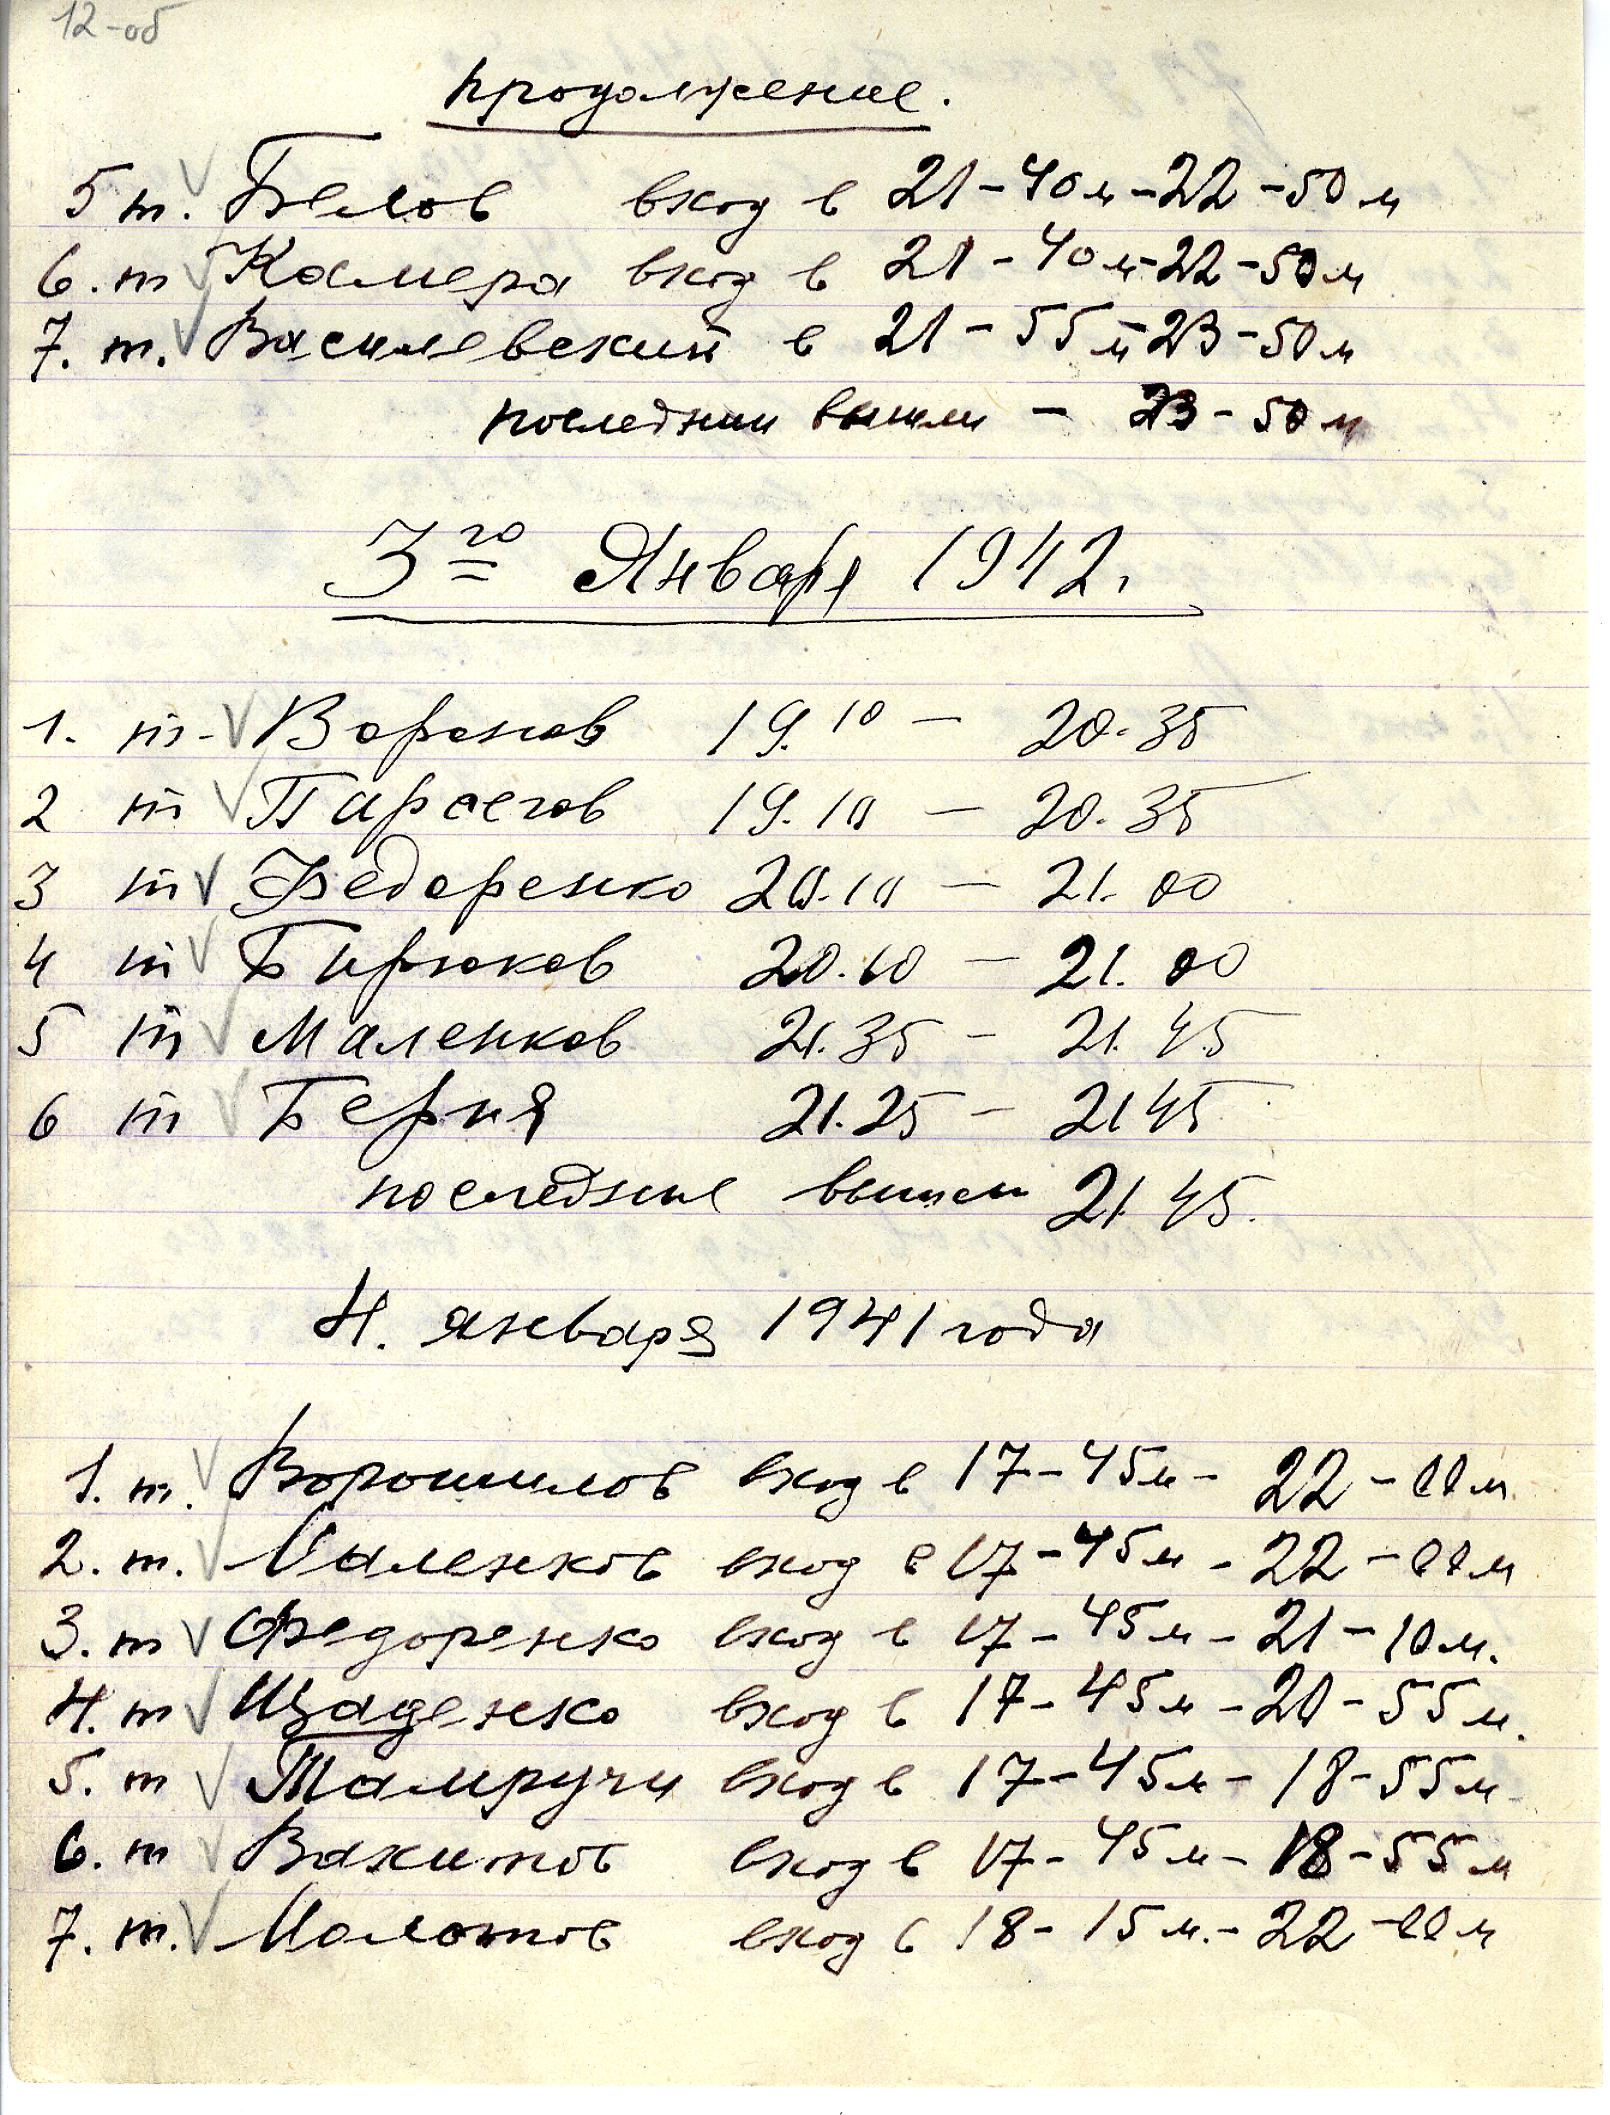 12-об
продолжение.
5 т. Белов вход в 21-40м-22-50м
6. т Камера вход в 21-40м-22-50м
7. т. Василевский в 21-55м-23-50м
последнии вышли - 23-50м
3го Января 1942.
1. т. Воронов 19.10 - 20.35
2 т Парсегов 19.10 - 20.35
3 т Федоренко 20.10 - 21.00
4 т Бирюков 20.10 - 21.00
5 т Маленков 21.35 - 21.45
6 т Берия 21.25 - 2145
последние вышли 21.45.
4. января 1941 года
1. т. Ворошилов вход в 17-45м- 22-00м
2. т. Маленков вход в 17-45м-22-00м
3. т Федоренко вход в 17-45м-21-10м.
4. т Щаденко вход в 17-45м-20-55м.
5. т Тамручи вход в 17-45м-18-55м
6. т Вахитов вход в 17-45м-18-55м
7. т. Молотов вход в 18-15м.-22-00м